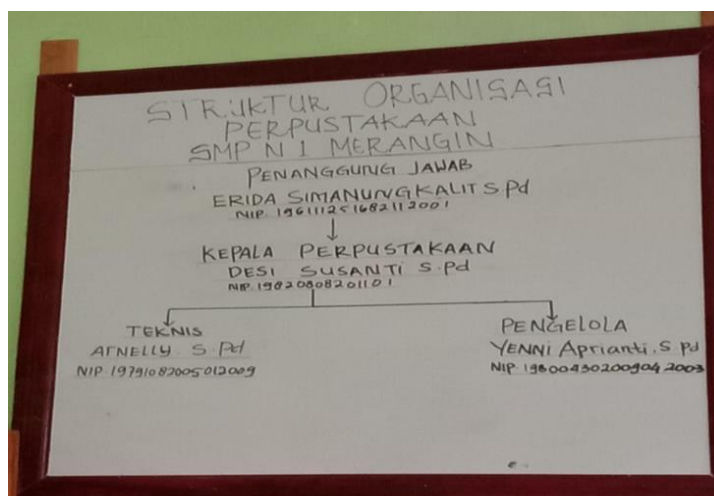 STRUKTUR ORGANISASI
PERPUSTAKAAN
SMP N 1 MERANGIN
PENANGGUNG JAWAB
ERIDA SIMANUNGKALIT S.Pd
NIP. 196111251682112001
KEPALA PERPUSTAKAAN
DESI SUSANTI S.Pd
NIP. 19820808201101
TEKNIS
ATNELLY S.Pd
NIP 19791082005012009
PENGELOLA
YENNI Aprianti, S Pd
NIP 19800430200904 2003